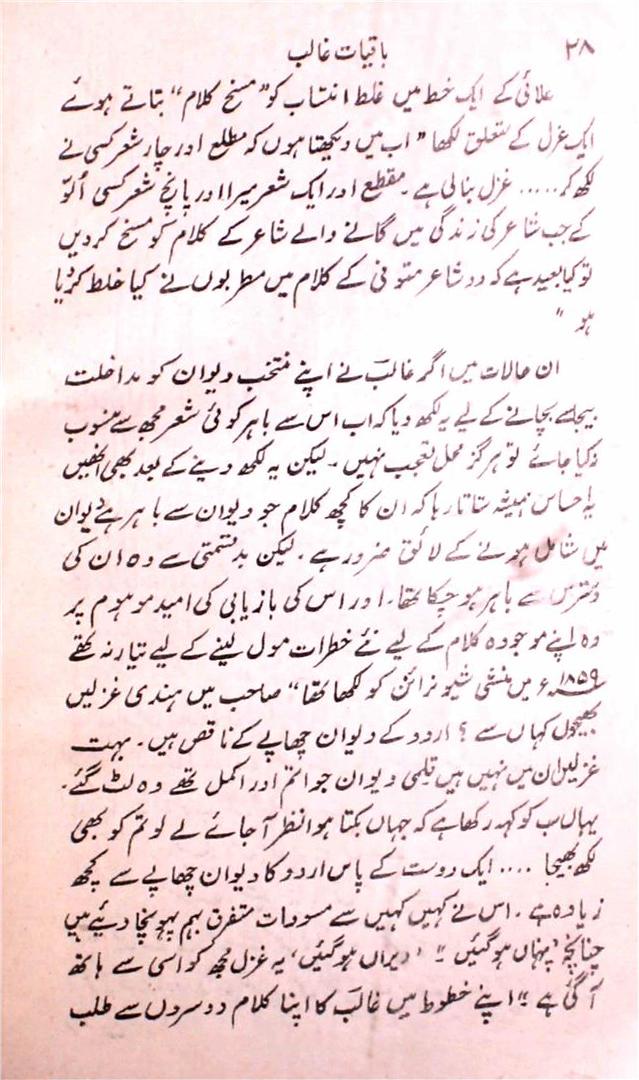 ۲۸
باقیات غالب
علائی کے ایک خط میں غلط انتساب کو "مسخ کلام" بتاتے ہوئے
ایک غزل کے متعلق لکھا "اب میں دیکھتا ہوں کہ مطلع اور چار شعر کسی نے
لکھ کر..... غزل بنالی ہے۔ مقطع اور ایک شعر میرا اور پانچ شعر کسی اُلّو
کے جب شاعر کی زندگی میں گانے والے شاعر کے کلام کو مسخ کردیں
تو کیا بعید ہے کہ دو شاعر متوفی کے کلام میں مطربوں نے کیا خلط کردیا
ہو"
ان حالات میں اگر غالبؔ نے اپنے منتخب دیوان کو مداخلت
بیجا سے بچانے کے لیے یہ لکھ دیا کہ اب اس سے باہر کوئی شعر مجھ سے منسوب
نہ کیا جائے تو ہرگز محل تعجب نہیں۔ لیکن یہ لکھ دینے کے بعد بھی انھیں
یہ احساس ہمیشہ ستاتا رہا کہ ان کا کچھ کلام جو دیوان سے باہر ہے دیوان
میں شامل ہونے کے لائق ضرور ہے۔ لیکن بدقسمتی سے وہ ان کی
دسترس سے باہر ہو چکا تھا۔ اور اس کی بازیابی کی امید موہوم پر
وہ اپنے موجودہ کلام کے لیے نئے خطرات مول لینے کے لیے تیار نہ تھے
۱۸۵۹ء میں منشی شیو نرائن کو لکھا تھا "صاحب میں ہندی غزلیں
بھیجوں کہاں سے؟ اردو کے دیوان چھاپے کے ناقص ہیں۔ بہت
غزلیں ان میں نہیں ہیں قلمی دیوان جو اتم اور اکمل تھے وہ لٹ گئے۔
یہاں سب کو کہہ رکھا ہے کہ جہاں بکتا ہوا نظر آجائے لے لو تم کو بھی
لکھ بھیجا .... ایک دوست کے پاس اردو کا دیوان چھاپے سے کچھ
زیادہ ہے۔ اس نے کہیں کہیں سے مسودات متفرق بہم پہونچا دیئے ہیں
چنانچہ 'پنہاں ہوگئیں" 'ویراں ہوگئیں' یہ غزل مجھ کو اسی سے ہاتھ
آگئی ہے" اپنے خطوط میں غالبؔ کا اپنا کلام دوسروں سے طلب